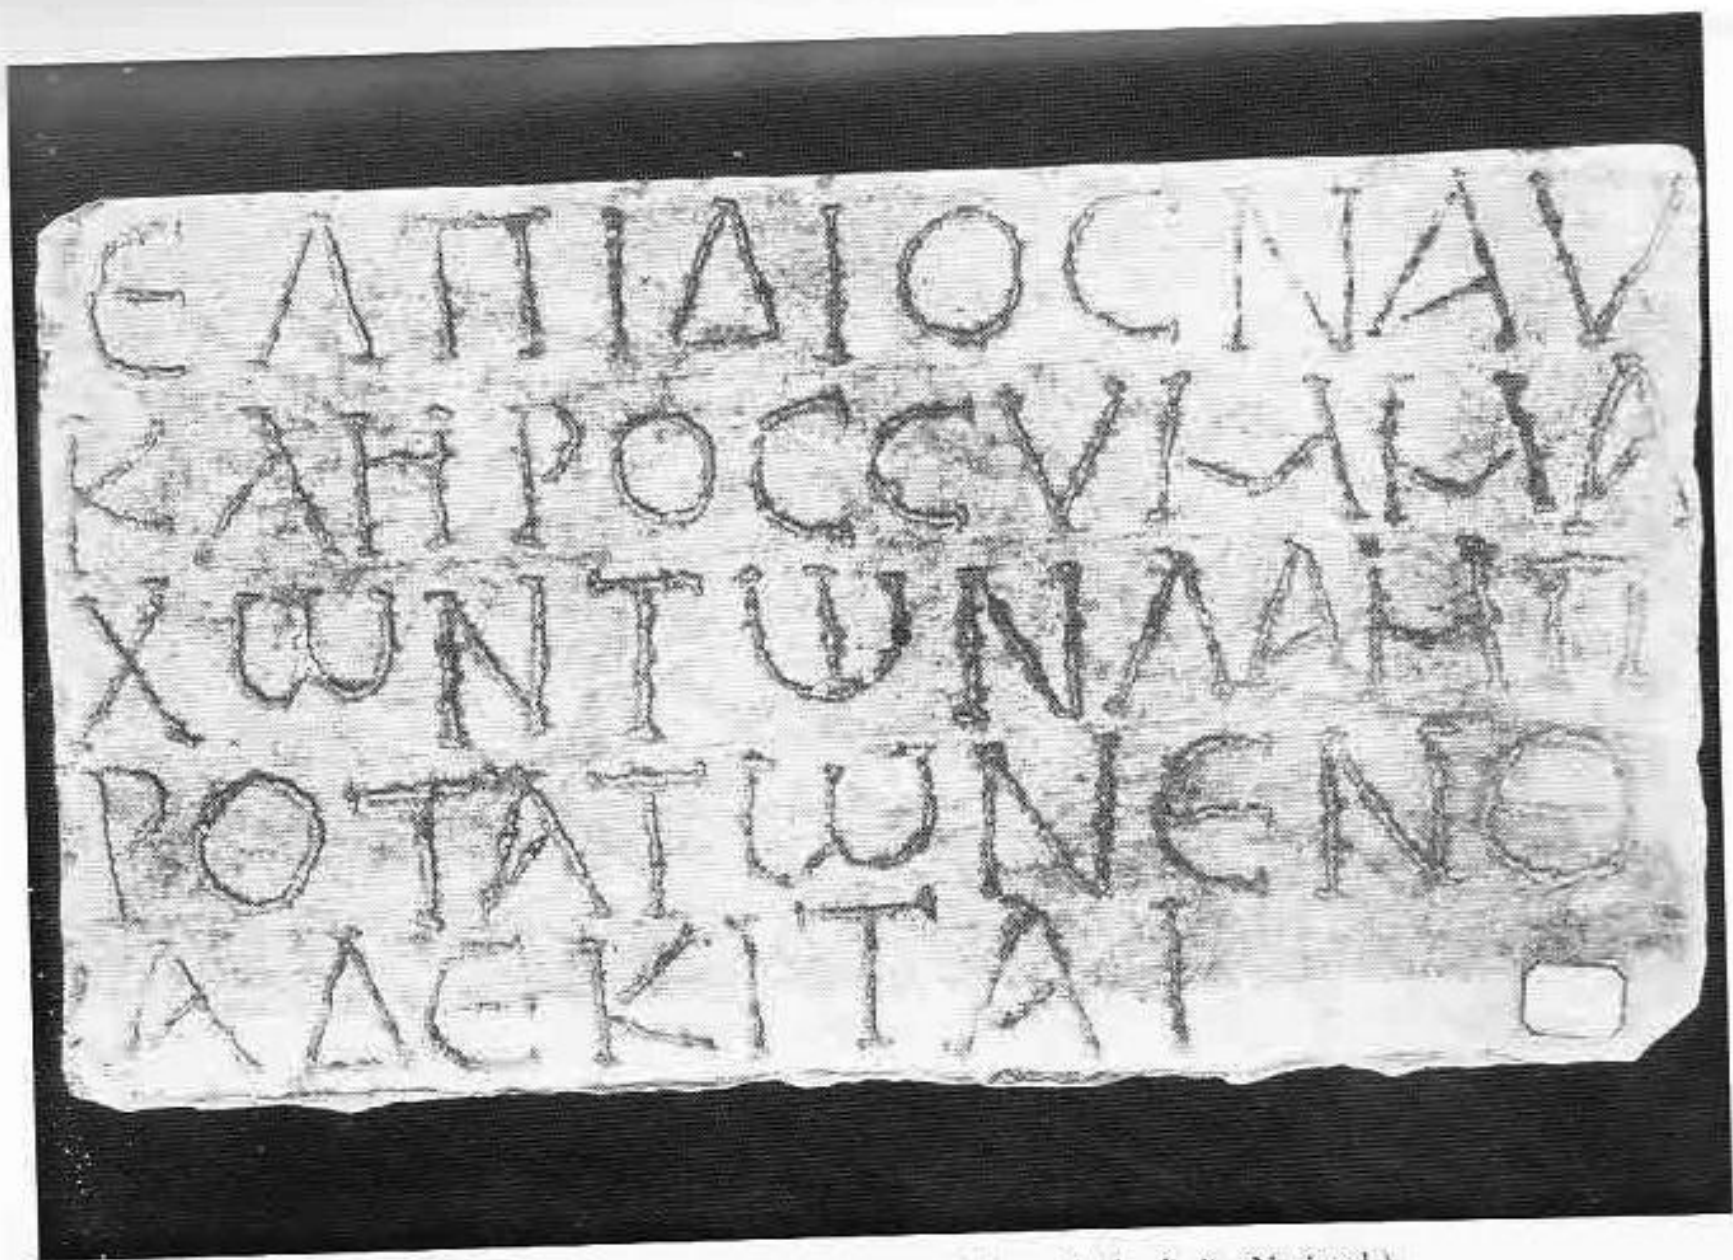 ЄΛΠΙΔΙΟϹΝΑΥ
ΚΛΗΡΟϹϹΥΜΜΑ
ΧωΝΤωΝΛΑΜΠ
ΡΟΤΑΤωΝЄΝΘ
ΑΔЄΚΙΤΑΙ